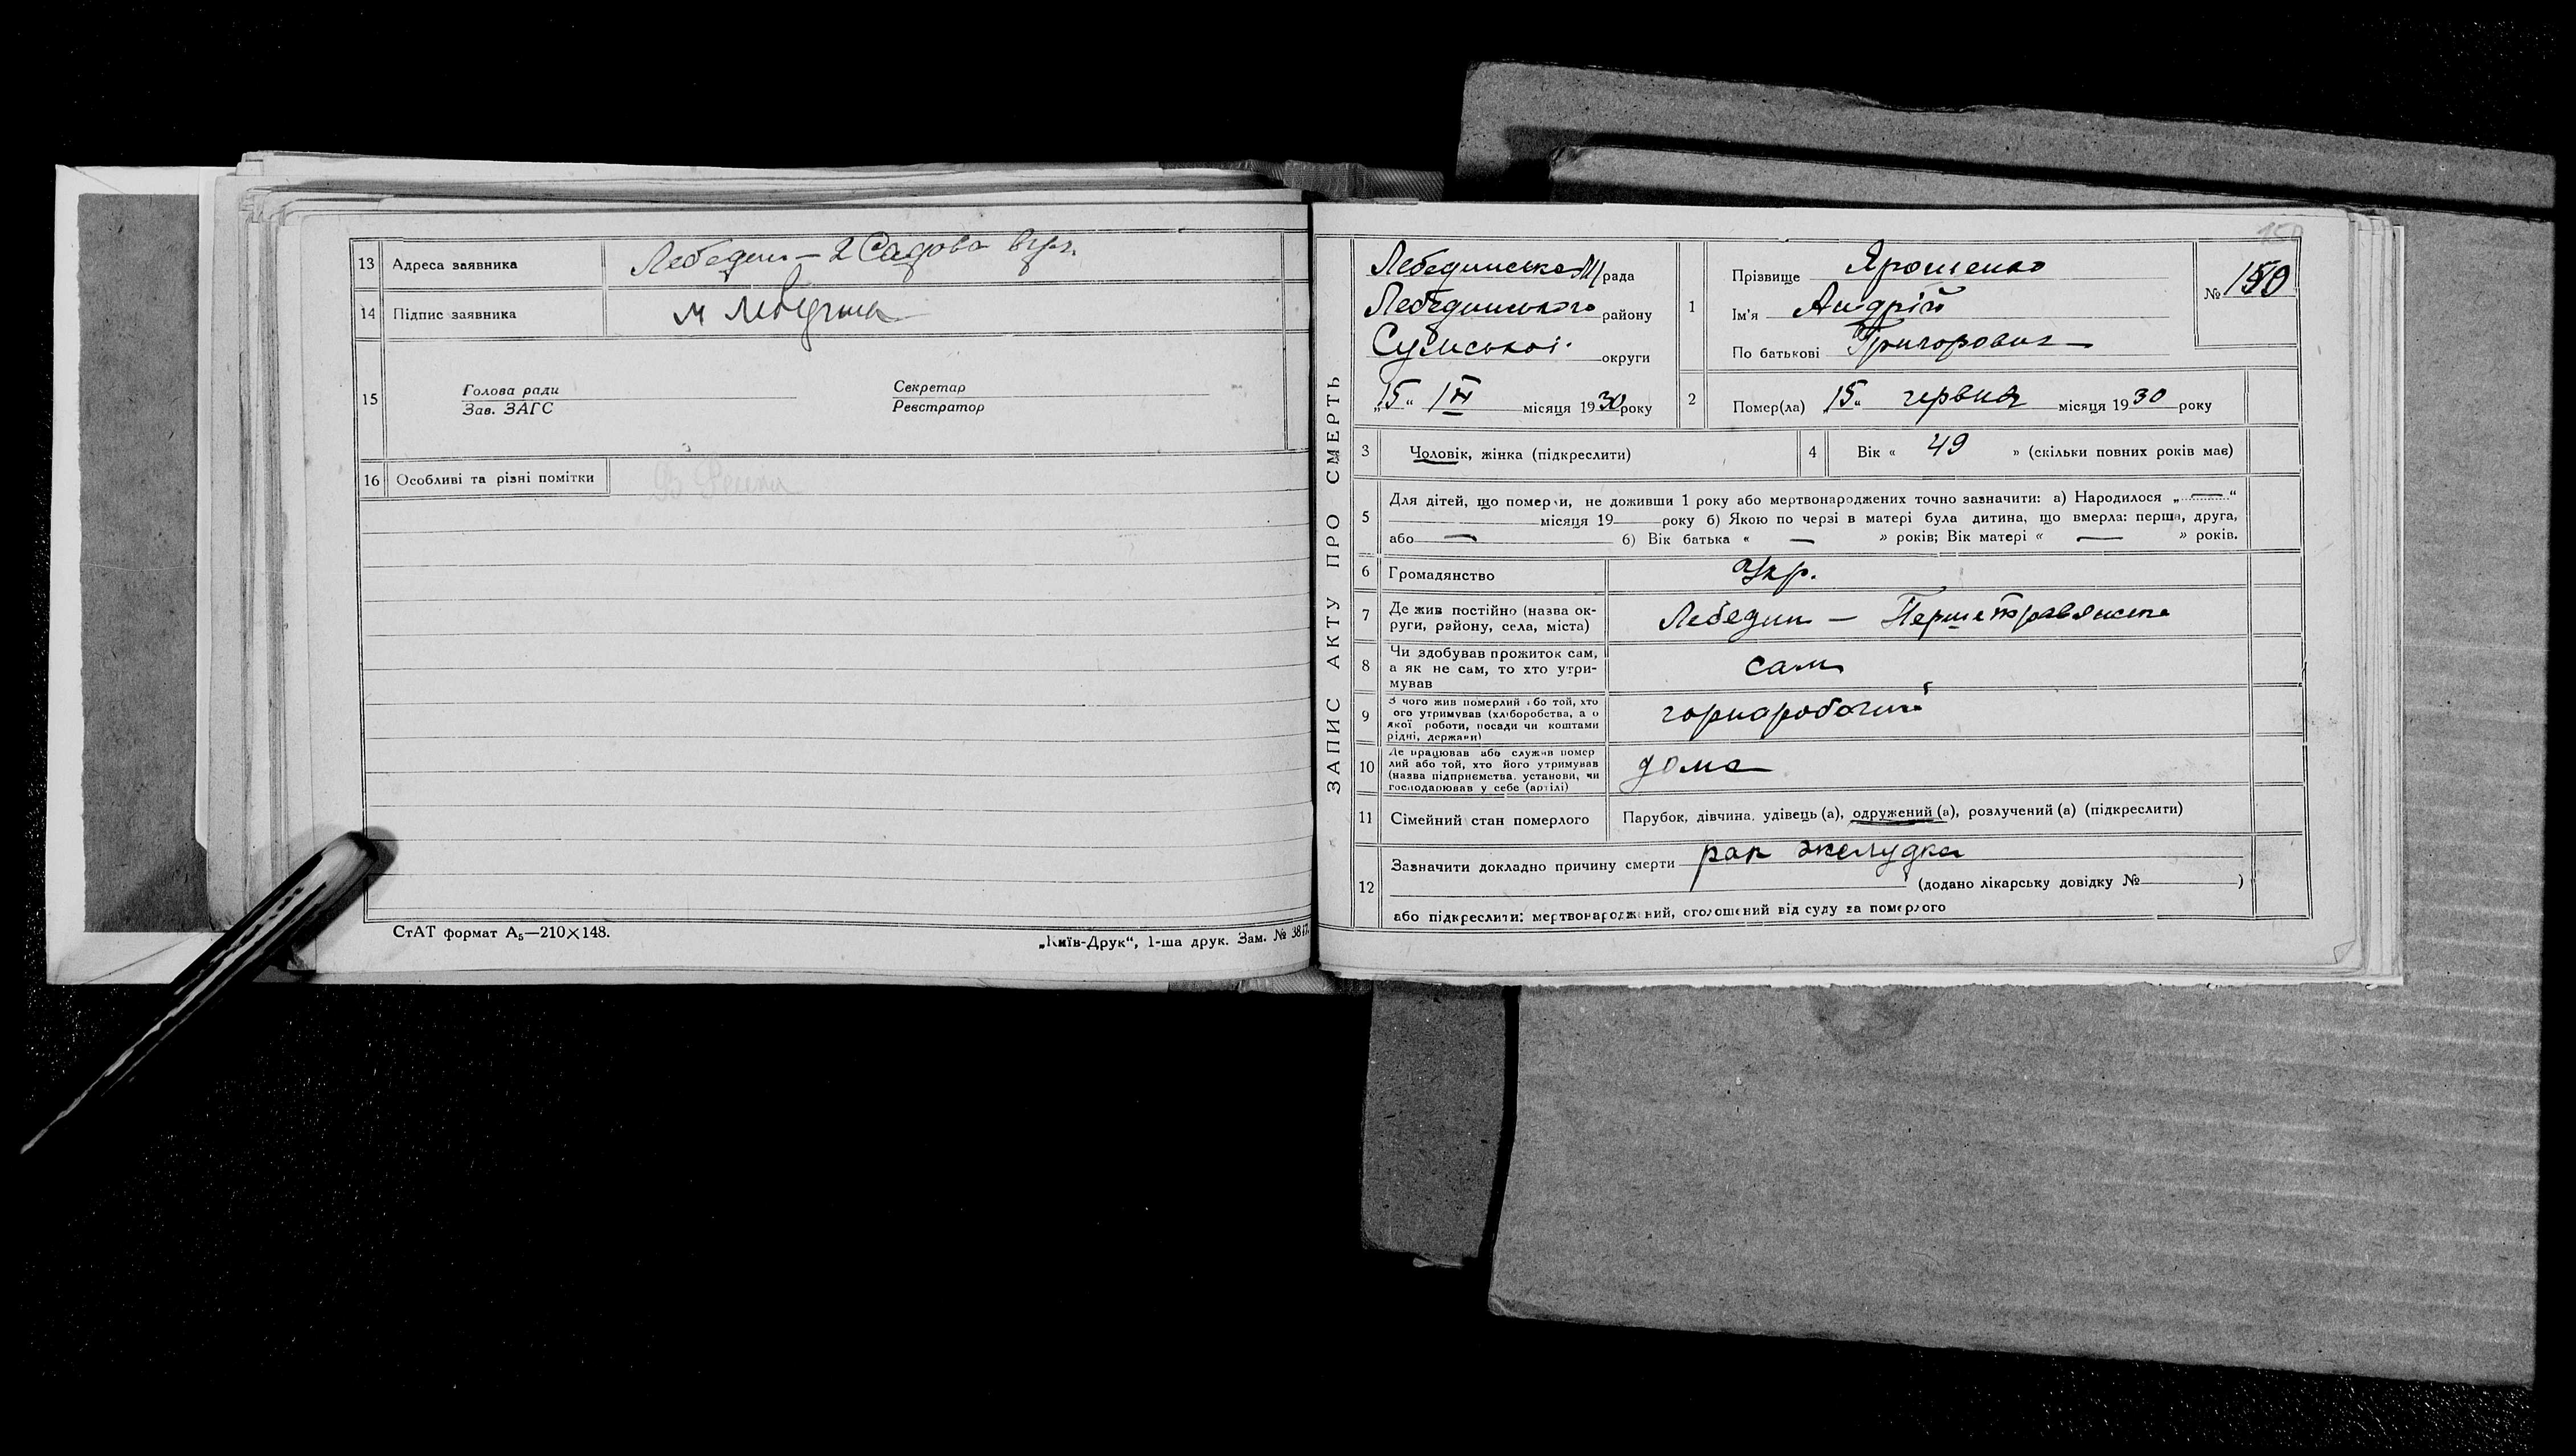 13 Адреса заявника Лебедин — 2 Садова вул.
14 Підпис заявника
15 Голова ради Секретар
Зав. ЗАГС Реєстратор
16 Особливі та різні помітки
СтАТ формат А₅—210×148.
„Київ-Друк“, 1-ша друк. Зам. № 3817.
150
ЗАПИС АКТУ ПРО СМЕРТЬ
Лебединська М/рада
Лебединського району
Сумської округи
„15“ VI місяця 1930 року
1 Прізвище Ярошенко
Ім'я Андрій
По батькові Григорович
№ 150
2 Помер(ла) 15„ червня місяця 1930 року
3 Чоловік, жінка (підкреслити)
4 Вік « 49 » (скільки повних років має)
5 Для дітей, що померли, не доживши 1 року або мертвонароджених точно зазначити: а) Народилося „ — “
місяця 19 року б) Якою по черзі в матері була дитина, що вмерла: перша, друга,
або — б) Вік батька « — » років; Вік матері « — » років.
6 Громадянство Укр.
7 Де жив постійно (назва ок-
руги, району, села, міста) Лебедин —
8 Чи здобував прожиток сам,
а як не сам, то хто утри-
мував сам
9 З чого жив померлий або той, хто
ого утримував (хліборобства, а о
якої роботи, посади чи коштами
рідні, держави) чорноробочий
10 Де працював або служив помер
лий або той, хто його утримував
(назва підприємства, установи, чи
господарював у себе (артілі) дома
11 Сімейний стан померлого Парубок, дівчина, удівець (а), одружений (а), розлучений (а) (підкреслити)
12 Зазначити докладно причину смерти рак желудка
(додано лікарську довідку № )
або підкреслити: мертвонароджений, оголошений від суду за померлого